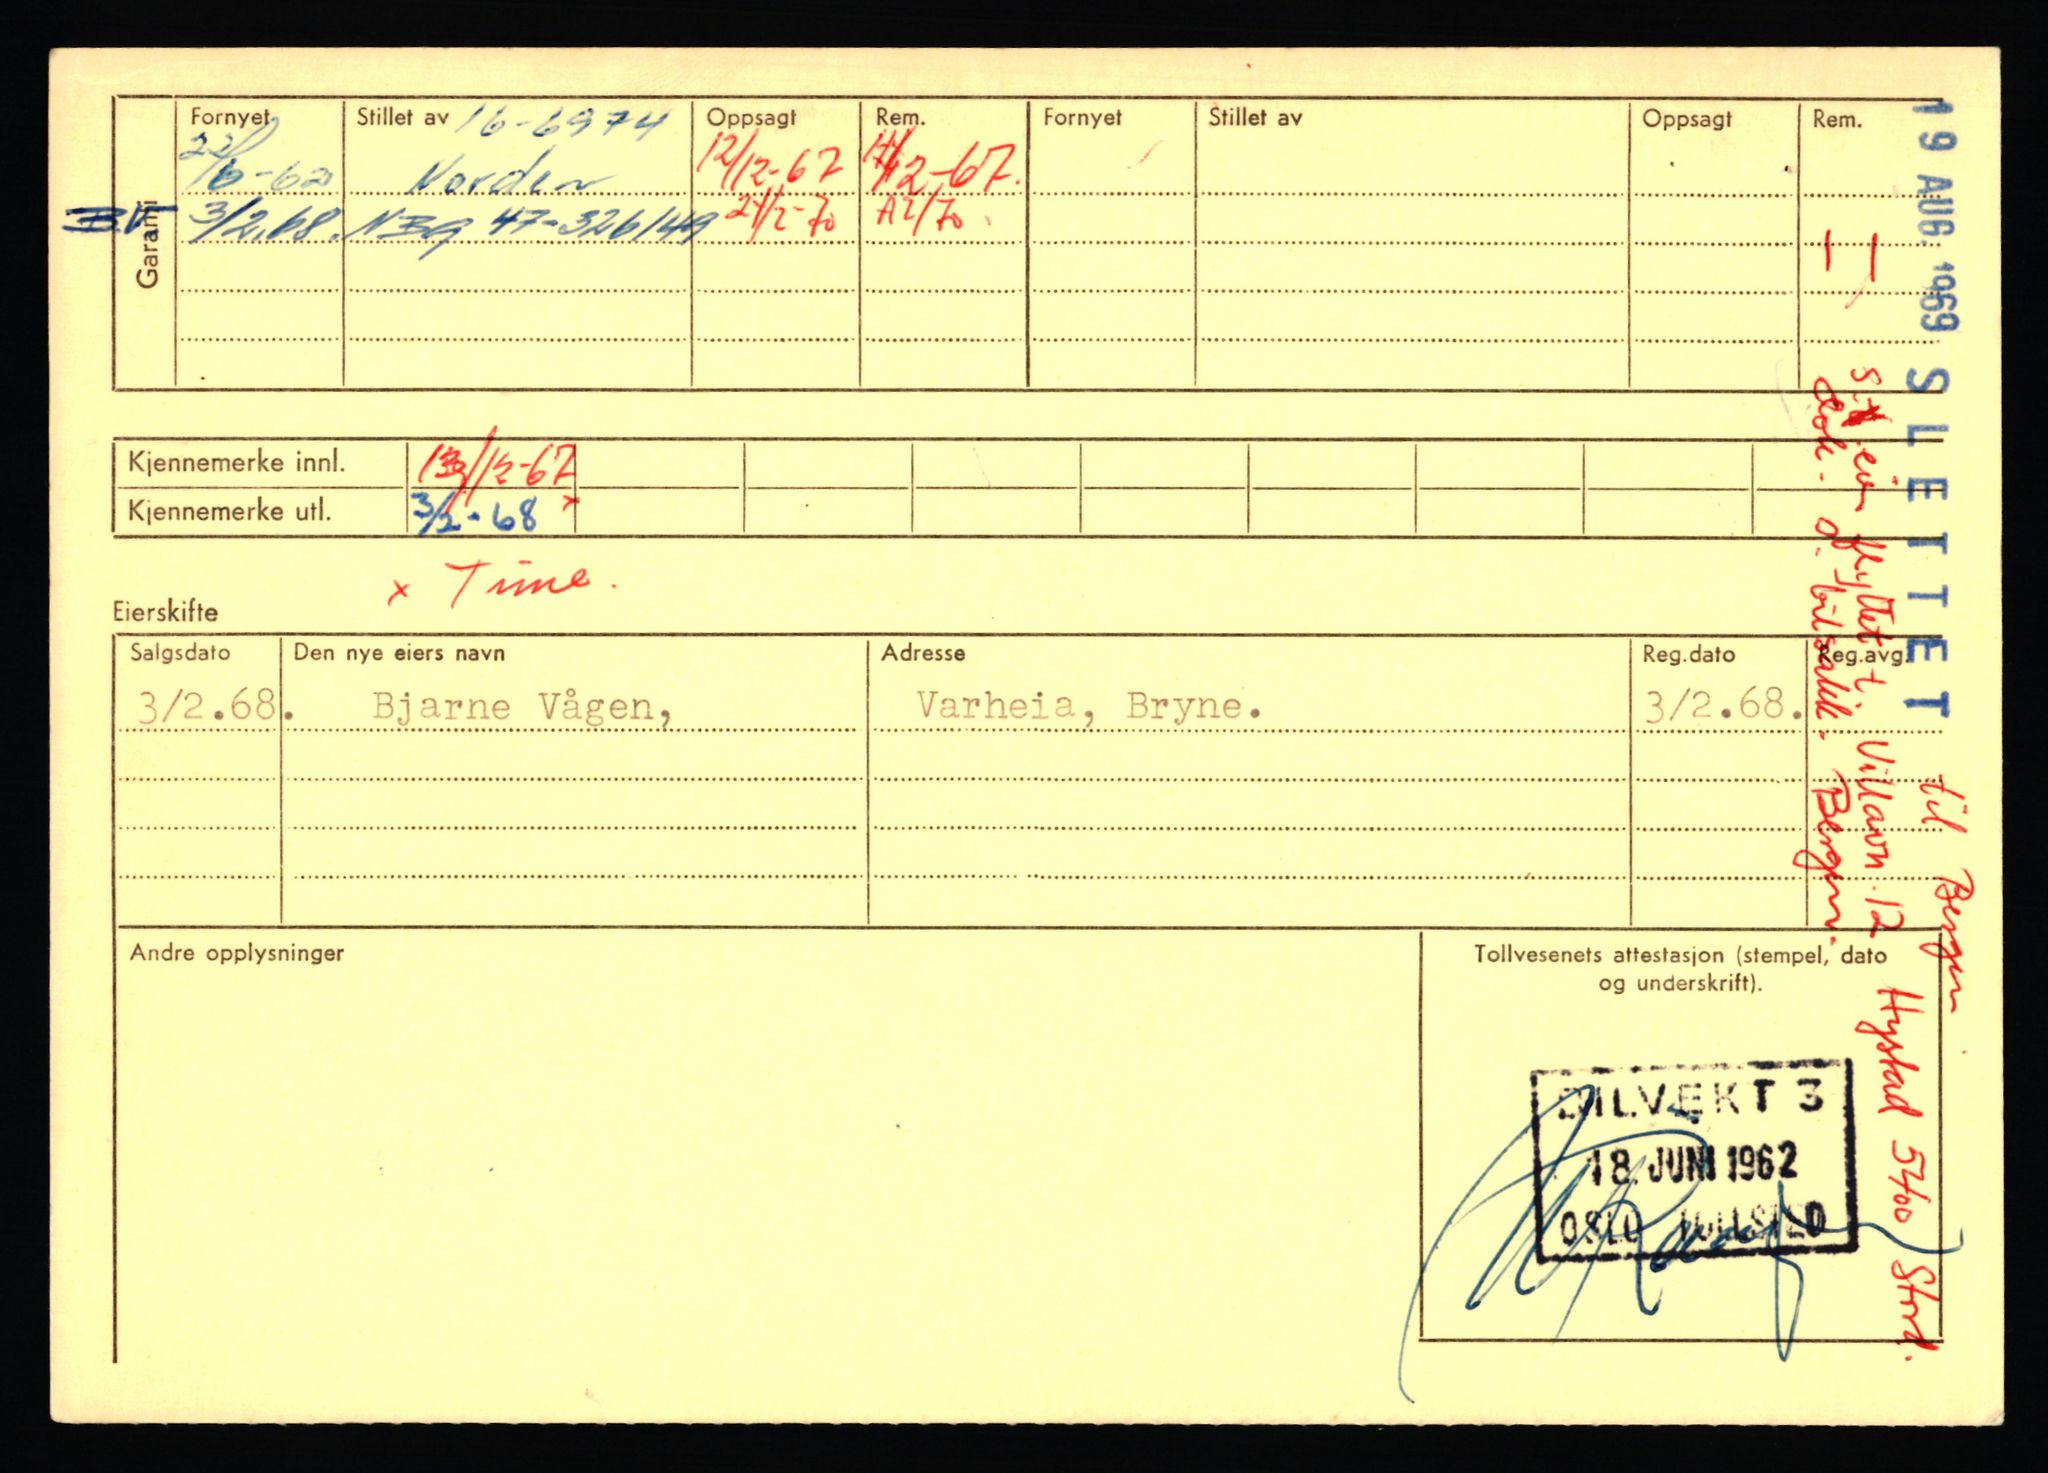 Garanti
Fornyet Stillet av Oppsagt Rem. Fornyet Stillet av Oppsagt Rem.
16-6974
22/6-62 Norden 12/12-67 12-67.
3/2.68. NBG 47-326/149 2-70 A2/70.
Kjennemerke innl. /12-67
Kjennemerke utl. 3/2-68 x
x Time.
Eierskifte
Salgsdato Den nye eiers navn Adresse Reg.dato Reg.avg.
3/2.68. Bjarne Vågen, Varheia, Bryne. 3/2.68.
Andre opplysninger
Tollvesenets attestasjon (stempel, dato
og underskrift).
BILVEKT 3
18. JUNI 1962
OSLO TOLLSTED
19 AUG. 1969 SLETTET til Bergen
eier flyttet t. Villavn. 12 Hystad 5400 Stord.
dok. o. bilsakk. Bergen.